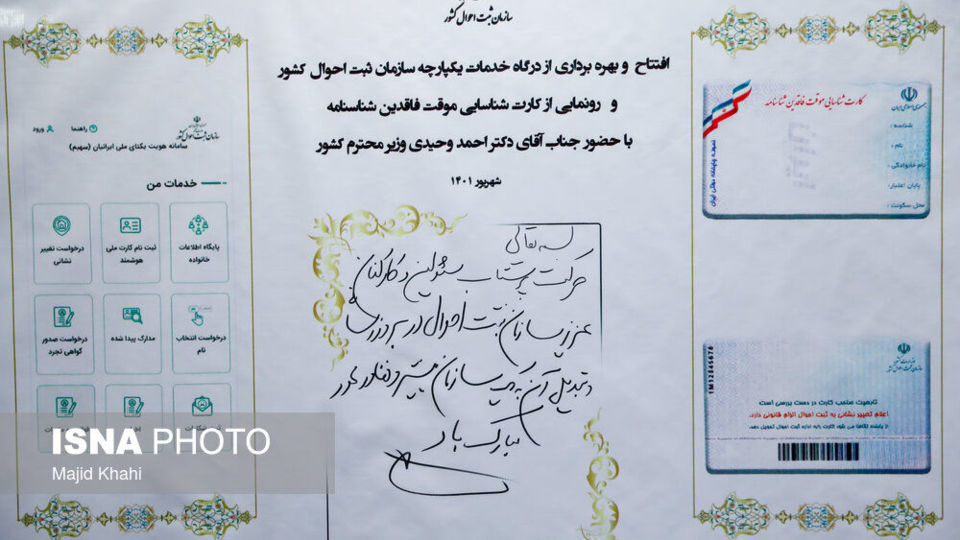 سازمان ثبت احوال کشور
افتتاح و بهره برداری از درگاه خدمات یکپارچه سازمان ثبت احوال کشور
و رونمایی از کارت شناسایی موقت فاقدین شناسنامه
با حضور جناب آقای دکتر احمد وحیدی وزیر محترم کشور
شهریور ۱۴۰۱
بسمه تعالی
حرکت پرشتاب مسئولین و کارکنان
عزیز سازمان ثبت احوال در بروزرسانی
و تبدیل آن به یک سازمان پیشرو و فناور محور
مبارک باد
جمهوری اسلامی ایران
کارت شناسایی موقت فاقدین شناسنامه
شناسه :
نام :
نام خانوادگی :
پایان اعتبار:
محل سکونت :
سازمان ثبت احوال کشور
1M12345678
تابعیت صاحب کارت در دست بررسی است
اعلام تغییر نشانی به ثبت احوال الزام قانونی دارد.
از یابنده تقاضا می شود کارت رابه اداره ثبت احوال تحویل دهد.
سازمان ثبت احوال کشور
راهنما
ورود
سامانه هویت یکتای ملی ایرانیان (سهیم)
خدمات من
پایگاه اطلاعات خانواده
ثبت نام کارت ملی هوشمند
درخواست تغییر نشانی
درخواست انتخاب نام
مدارک پیدا شده
درخواست صدور گواهی تجرد
ISNA PHOTO
Majid Khahi